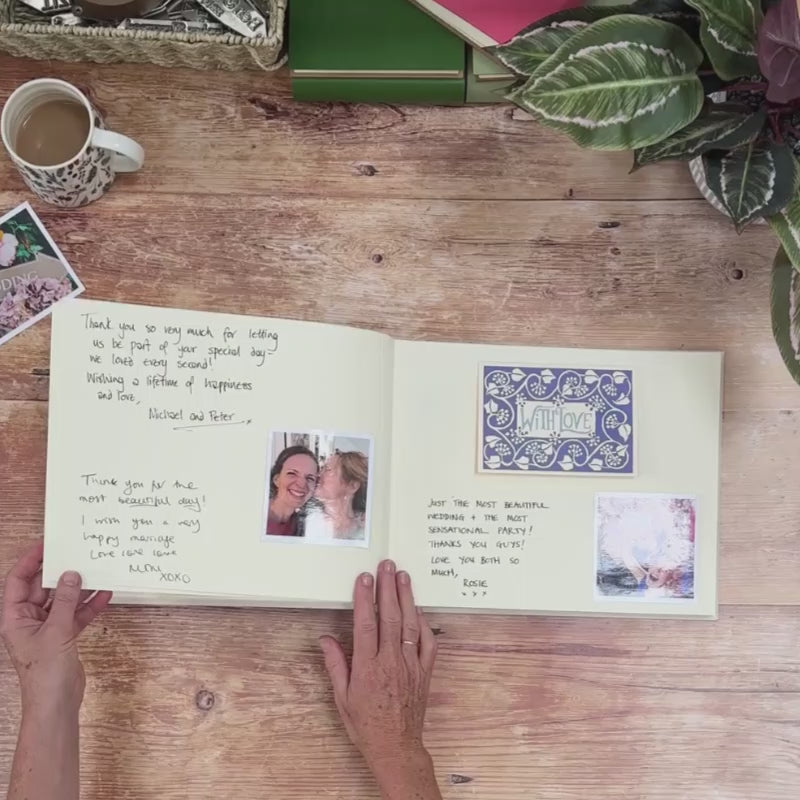 Thank you so very much for letting
us be part of your special day –
we loved every second!
Wishing a lifetime of happiness
and love,
Michael and Peter
Thank you for the
most beautiful day!
I wish you a very
happy marriage
Love love love
XOXO
WITH LOVE
JUST THE MOST BEAUTIFUL
WEDDING + THE MOST
SENSATIONAL PARTY!
THANKS YOU GUYS!
LOVE YOU BOTH SO
MUCH,
ROSIE
x x x